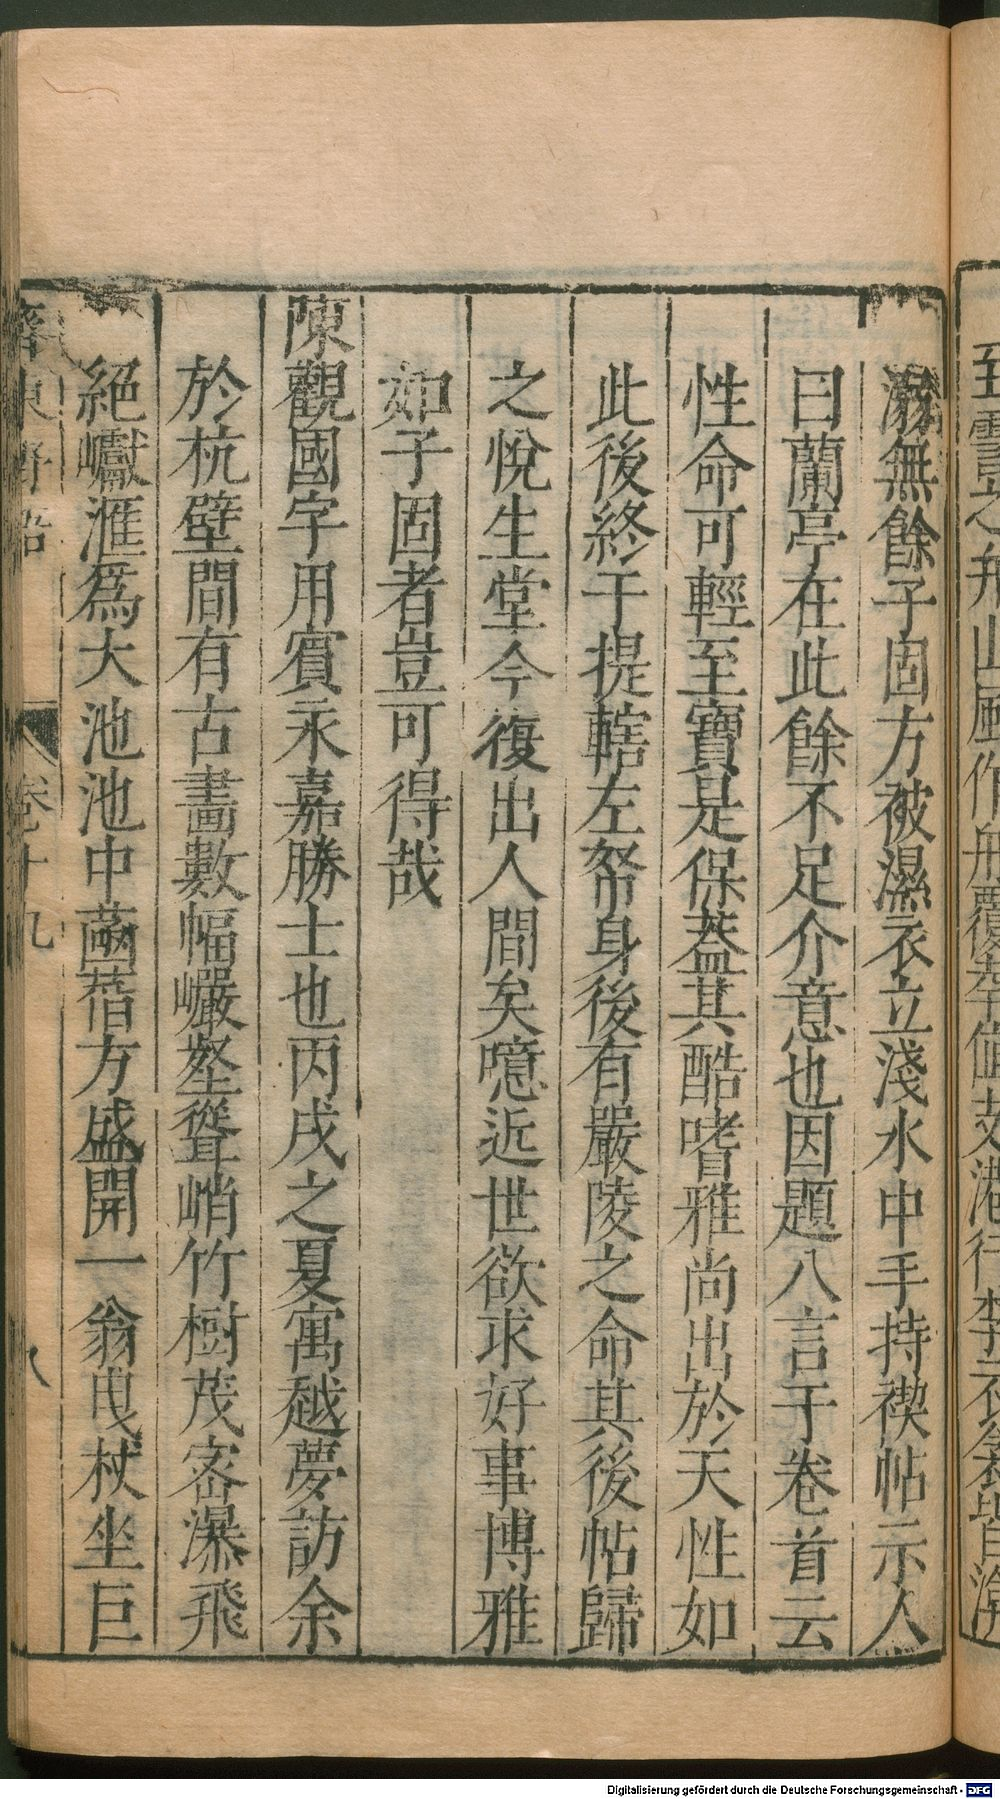 溺無餘子固方被濕衣立淺水中手持禊帖示人
曰蘭亭在此餘不足介意也因題八言于卷首云
性命可輕至寶是保蓋其酷嗜雅尚出於天性如
此後終于提轄左帑身後有嚴陵之命其後帖歸
之悅生堂今復出人間矣噫近世欲求好事博雅
如子固者豈可得哉
陳觀國字用賓永嘉勝士也丙戌之夏寓越夢訪余
於杭壁間有古畫數幅巗壑聳峭竹樹茂密瀑飛
絕巘滙爲大池池中菡萏方盛開一翁曳杖坐巨
齊東野語 卷十九 八
Digitalisierung gefördert durch die Deutsche Forschungsgemeinschaft - DFG